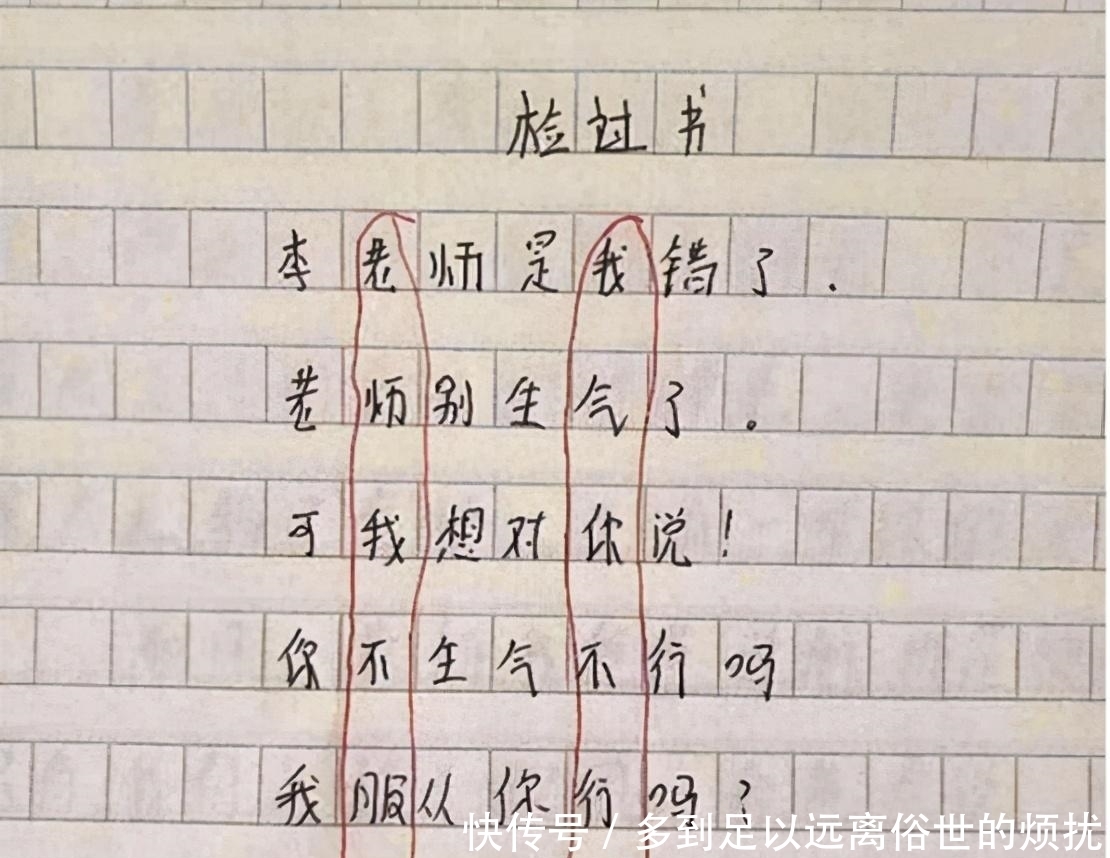 检过书
李老师是我错了.
老师别生气了。
可我想对你说!
你不生气不行吗
我服从你行吗?
快传号 / 多到足以远离俗世的烦扰